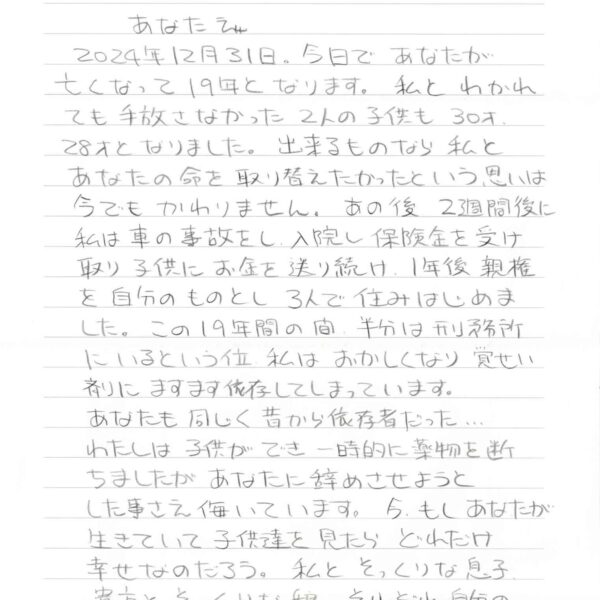 あなたへ
2024年12月31日。今日で あなたが
亡くなって19年となります。 私と わかれ
ても 手放さなかった 2人の子供も 30才.
28才となりました。 出来るものなら 私と
あなたの命を取り替えたかったという思いは
今でも かわりません。 あの後 2週間後に
私は 車の事故をし、入院し 保険金を受け
取り 子供に お金を送り続け、1年後 親権
を 自分のものとし 3人で 住みはじめま
した。 この19年間の間、半分は刑務所
にいるという位、私は おかしくなり 覚せい
剤に ますます依存してしまっています。
あなたも 同じく 昔から依存者だった…
わたしは 子供ができ 一時的に薬物を断
ちましたが あなたに 辞めさせようと
した事さえ 侮いています。 今、もし あなたが
生きていて 子供達を見たら どれだけ
幸せなのだろう。 私と そっくりな息子、
貴方と そっくりな娘、 それぞれ 自分の